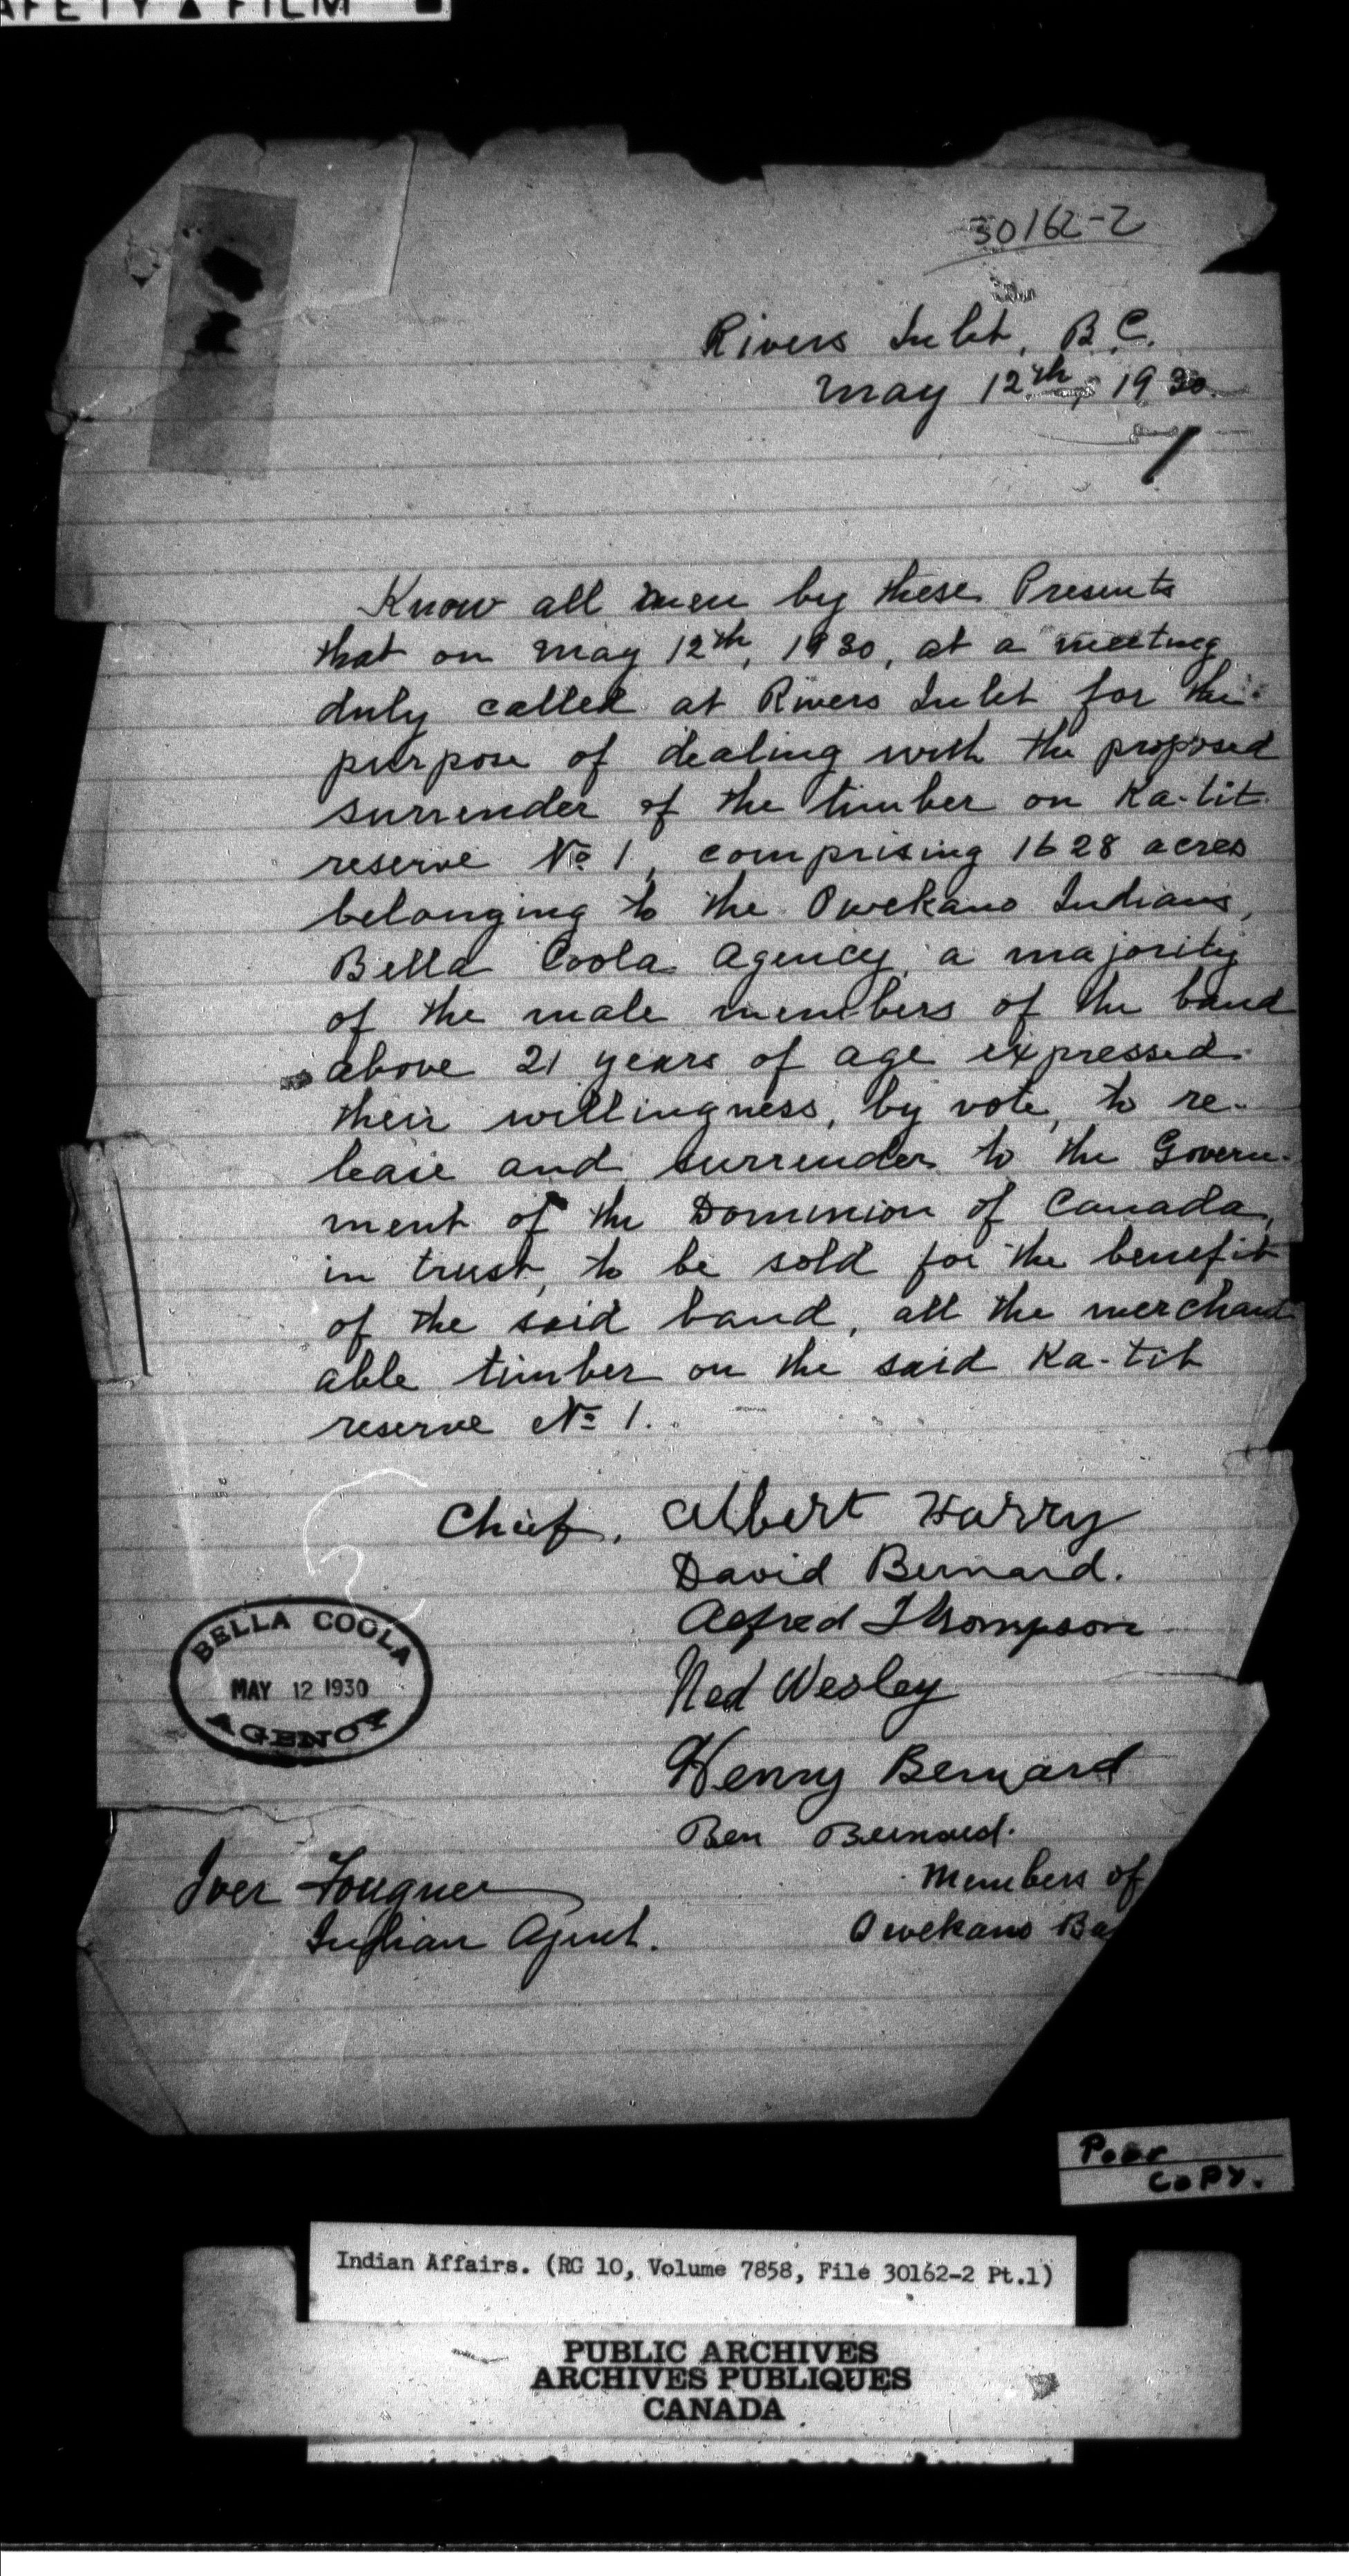 SAFETY ▲ FILM
30162-2
Rivers Inlet, B.C.
May 12th, 1930.
Know all men by these Presents
that on May 12th, 1930, at a meeting
duly called at Rivers Inlet for the
purpose of dealing with the proposed
surrender of the timber on Ka-tit
reserve No 1, comprising 1628 acres
belonging to the Owekano Indians,
Bella Coola Agency, a majority
of the male members of the band
above 21 years of age expressed
their willingness, by vote, to re-
lease and surrender to the Govern-
ment of the Dominion of Canada,
in trust, to be sold for the benefit
of the said band, all the merchant
able timber on the said Ka-tit
reserve No 1.
Chief, Albert Harry
David Bernard.
Alfred Thompson
Ned Wesley
Henry Bernard
Ben Bernard.
Members of
Owekano Ba
BELLA COOLA
MAY 12 1930
AGENCY
Iver Fougner
Indian Agent.
Poor
Copy.
Indian Affairs. (RG 10, Volume 7858, File 30162-2 Pt.1)
PUBLIC ARCHIVES
ARCHIVES PUBLIQUES
CANADA